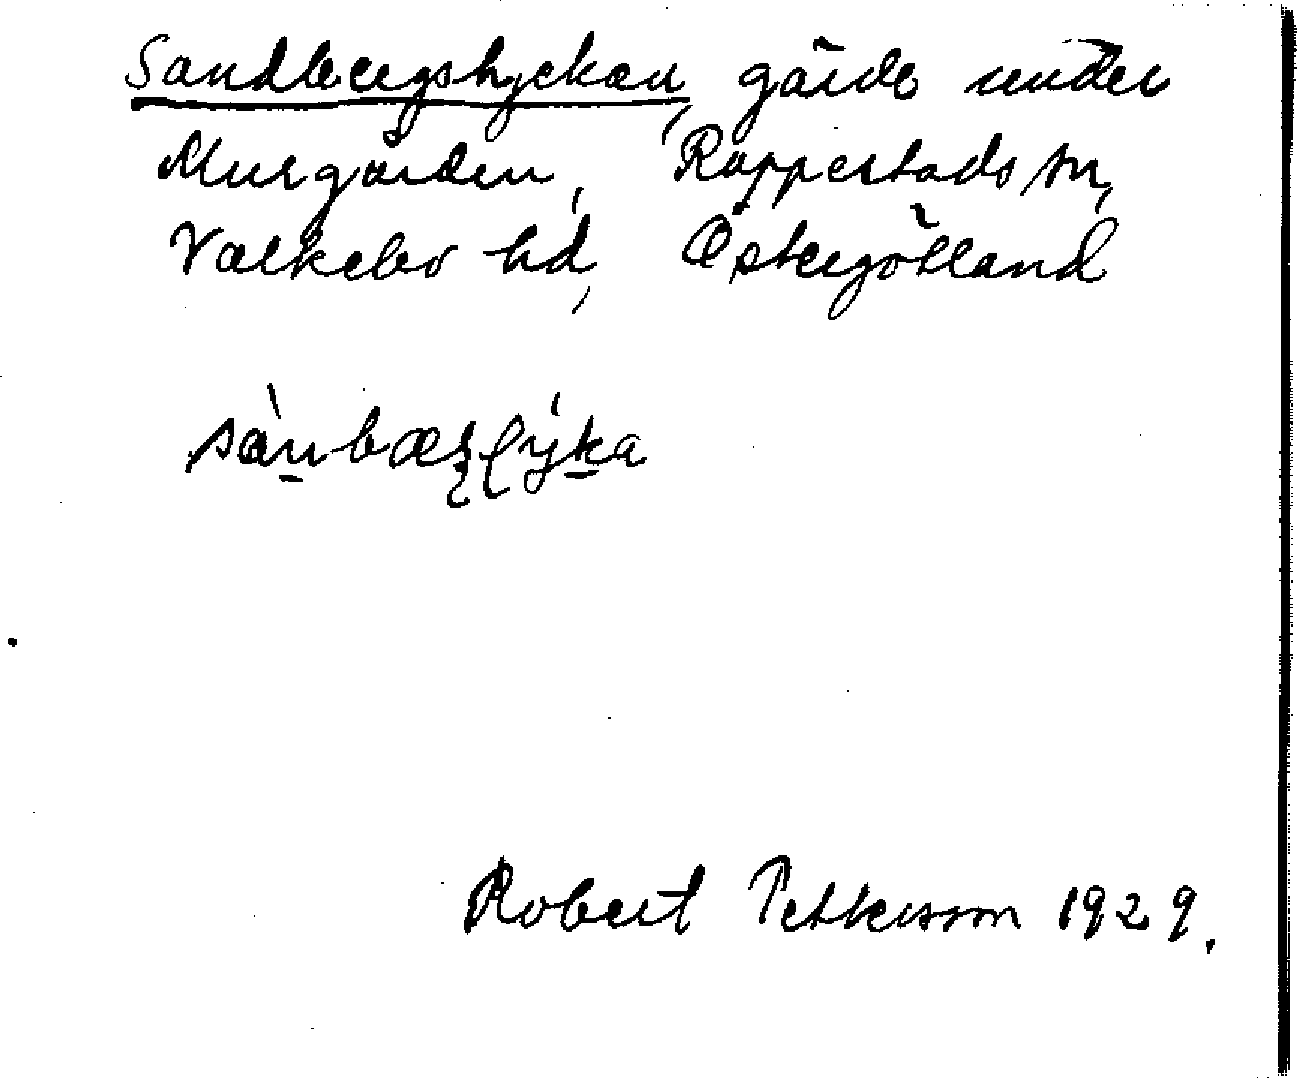 Sandbergslyckan, gärde under
Murgården, Rappestads sn,
Valkebo hd, Östergötland
Robert Pettersson 1929.